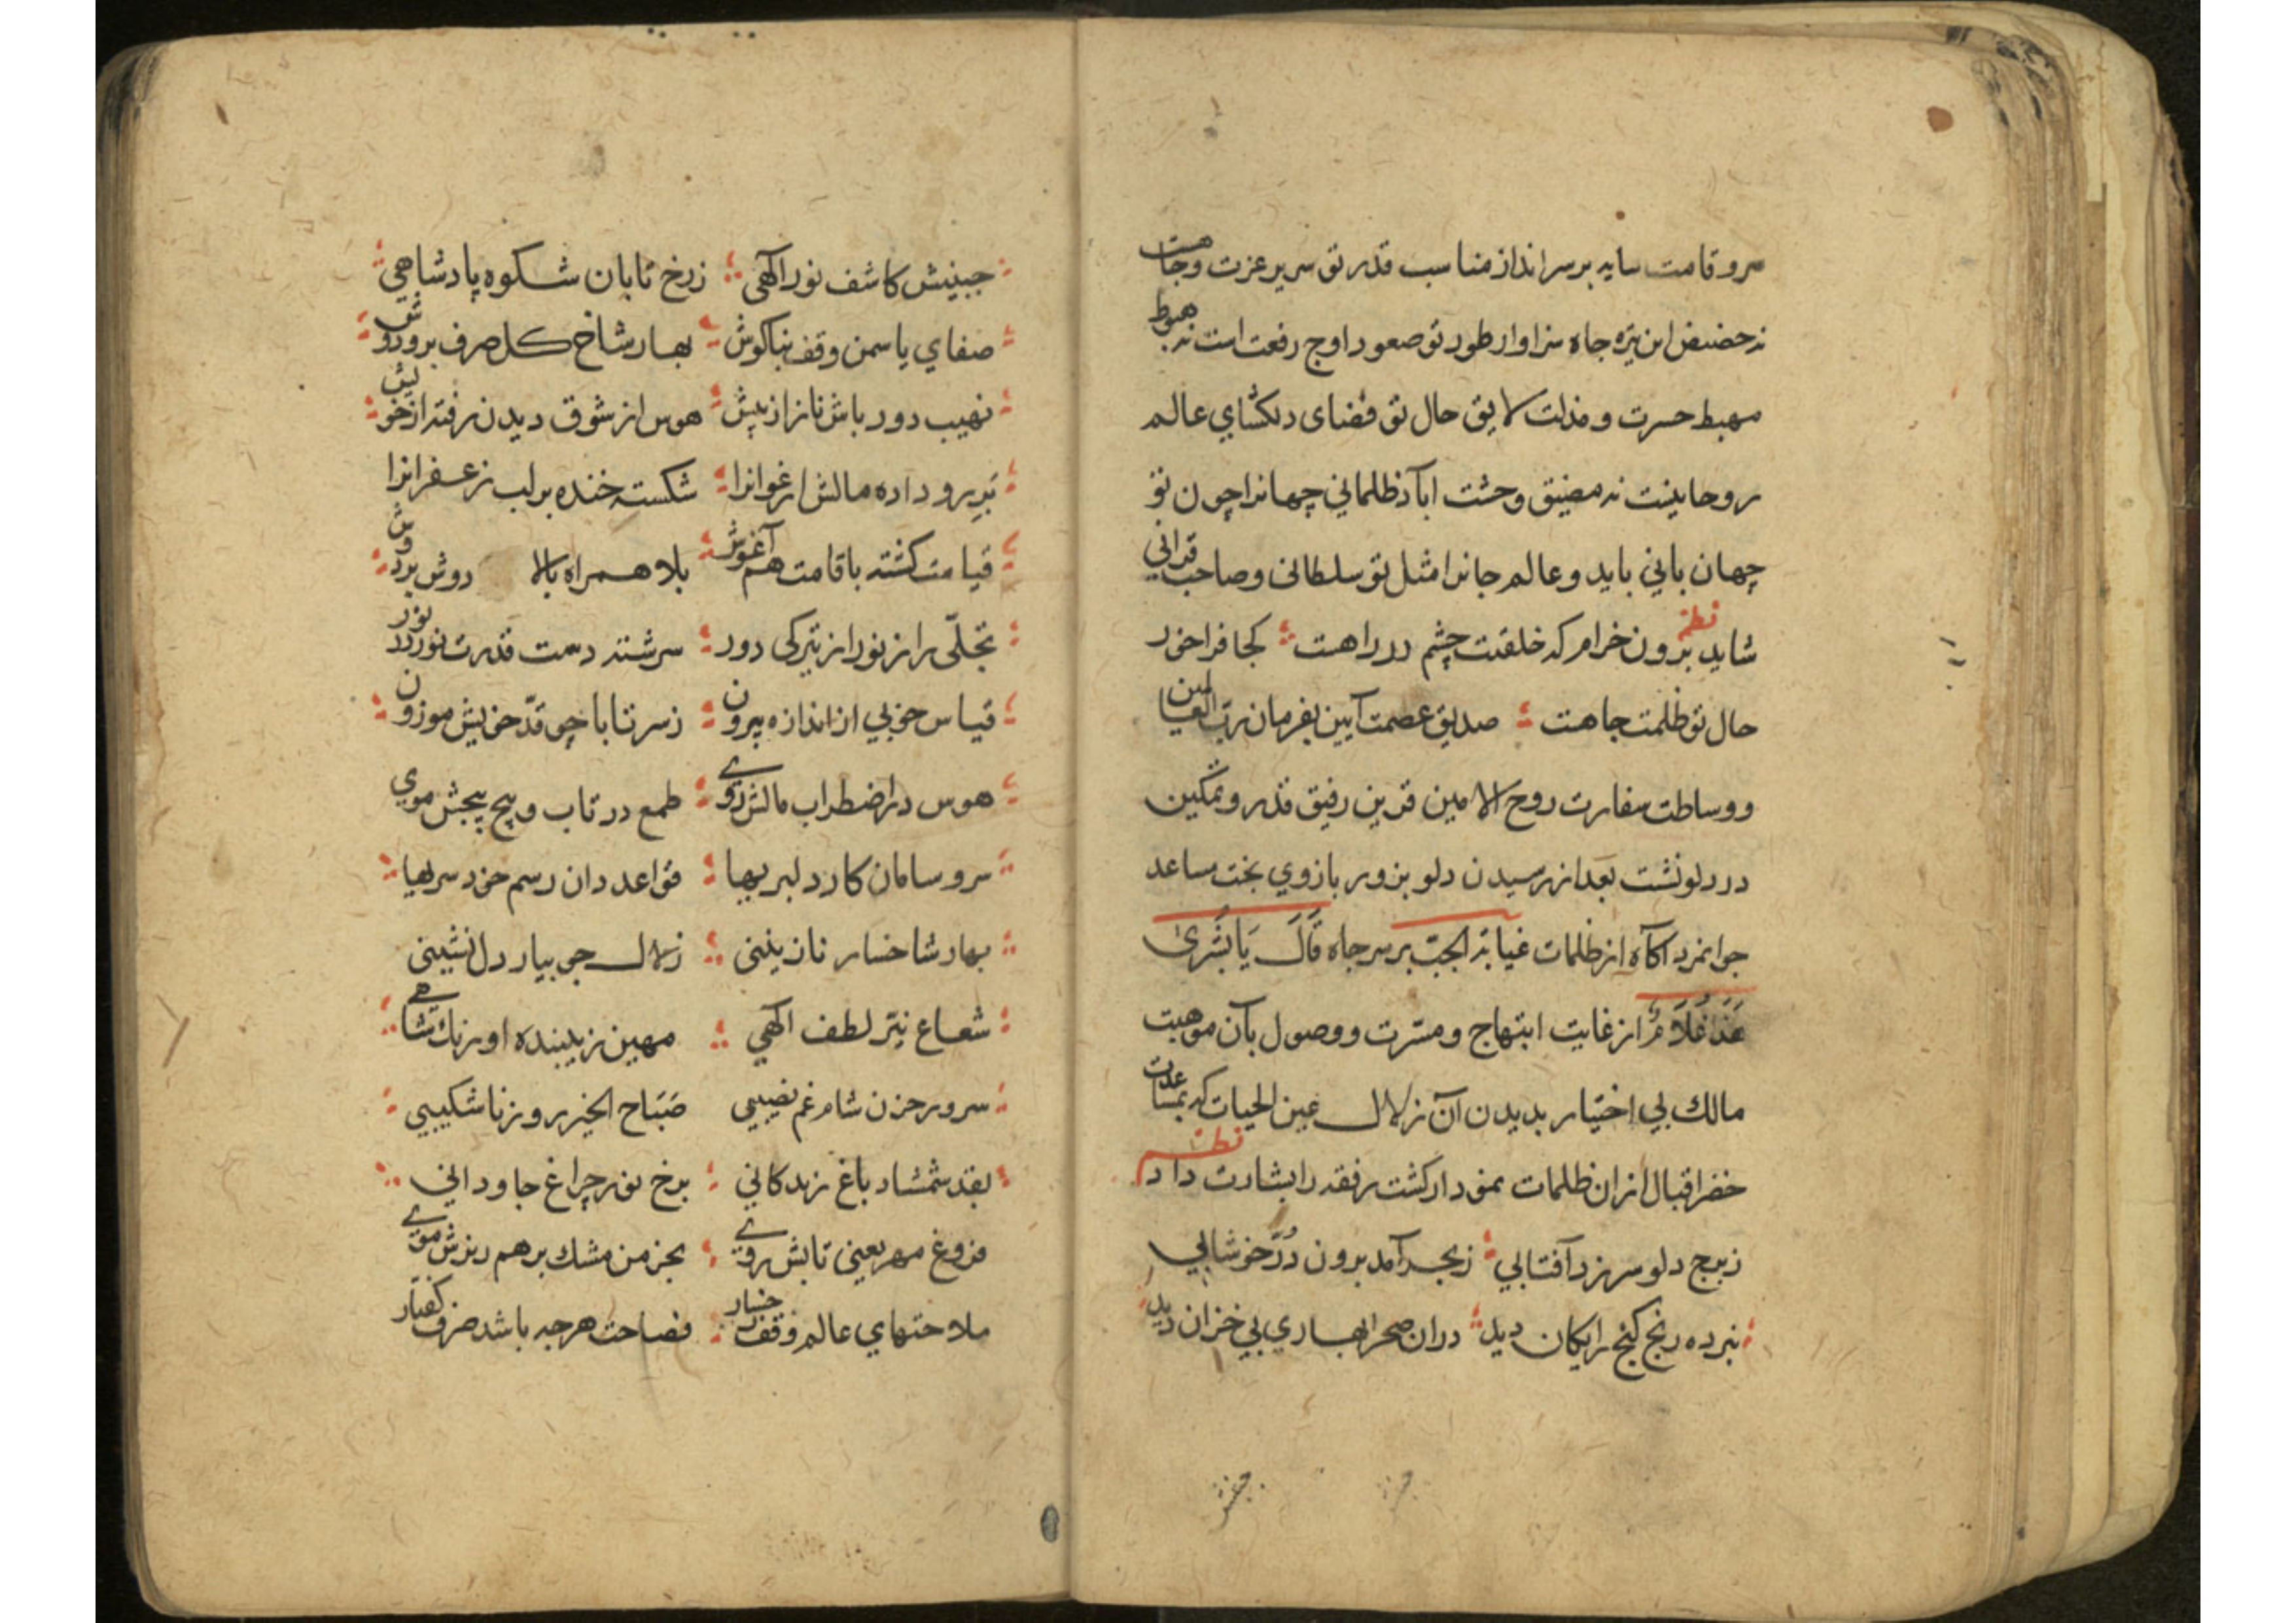 سرو قامت سایه بر سر انداز مناسب قدر تو سریر عزت وجاهت
نه حضیض این تیره جاه سزاوار طور تو صعود اوج رفعت است نه هبوط
مهبط حسرت و مذلت لایق حال تو فضای دلکشاي عالم
روحانیت نه مضیق وحشت اباد ظلماني چهانرا چون تو
چهان باني باید و عالم جانرا مثل تو سلطانی و صاحب قراني
نظم
شاید برون خرام که خلقت چشم در راهت کجا فراخور
حال تو ظلمت چاهت صدیق عصمت آیین بفرمان رب العالمین
و وساطت سفارت روح الامین قرین رفیق قدر و تمکین
در دلو نشت بعد از رسیدن دلو بزور بازوي بخت مساعد
جوانمرد اکاه از ظلمات غیابة الجب بر سر جاه قَالَ يَا بُشْرىٰ
هَذَا غُلَامٌ از غایت ابتهاج و مسرت و وصول بآن موهبت
مالك بي اختیار بدیدن آن زلال عین الحیات که بمساعدت
خضر اقبال از ان ظلمات نمودار کشت رفقه را بشارت داد
نظم
زبرج دلو سر زد آفتابي زبحر آمد برون دُرّ خوشابي
نبرده رنج کنج رایکان دید دران صحرا بهاري بي خزان دید
جبینش کاشف نور الٓهی زرخ تابان شکوه پادشاهي
صفاي یاسمن وقف بناکوش بهار شاخ کل صرف برو دوش
نهیب دور باش ناز از پیش هوس از شوق دیدن رفته از خویش
بَرِ رو داده مالش ارغوانرا شکسته خنده بر لب زعفرانرا
قیامت کشته با قامت هم آغوش بلا همراه بالا دوش بر دوش
تجلّی راز نور از تیرکی دور سرشته دست قدرت نور در نور
قیاس خوبي از اندازه بیرون زسر تا پا چو قدّ خویش موزون
هوس در اضطراب مالش روے طمع در تاب و پیچ پیچش موي
سر و سامان کار دلبریها قواعد دان رسم خود سریها
بهار شاخسار نازنینی زلال جویبار دل نشینی
شعاع نیّر لطف الٓهي مهین زیبنده اورنك شاهے
سرور حزن شام غم نصیبي صَبَاح الخیر روز ناشکیبي
بقد شمشاد باغ زندکاني برخ نور چراغ جاوداني
فروغ مهر یعنی تابش روے بجز من مشك برهم ریزش موے
ملاحتهاي عالم وقف رخسار فصاحت هر چه باشد صرف کفتار